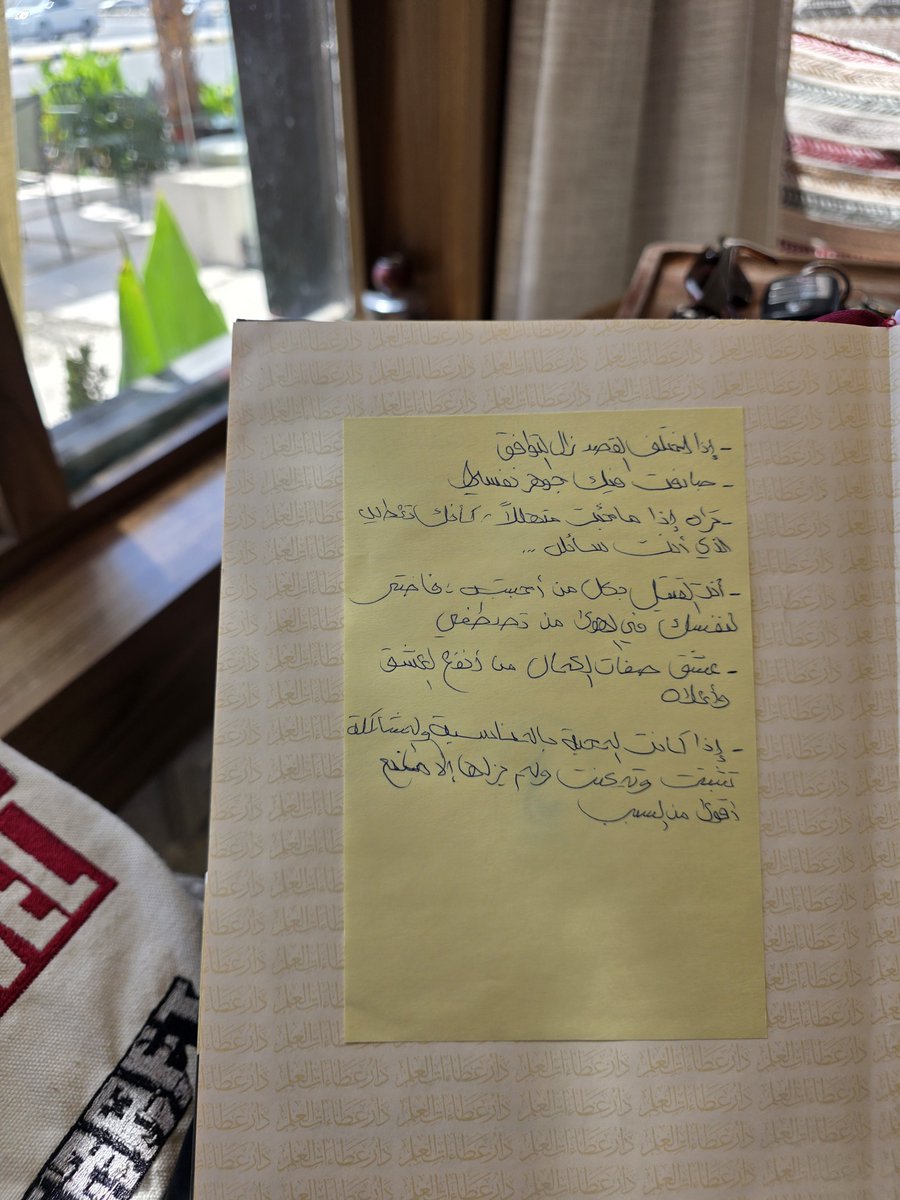 - إذا اختلف القصد زال التوافق
- صادفت فيك جوهر نفسيا
- تراه إذا ما جئت متهللاً، كأنك تعطيه
الذي أنت سائله ...
- أنت القتيل بكل من أحببته، فاختر
لنفسك في الهوى من تصطفي
- عشق صفات الكمال من أنفع العشق
وأعلاه
- إذا كانت المحبة بالمناسبة والمشاكلة
ثبتت وتمكنت ولم يزلها إلا مانع
أقوى من السبب
دار عطاءات العلم